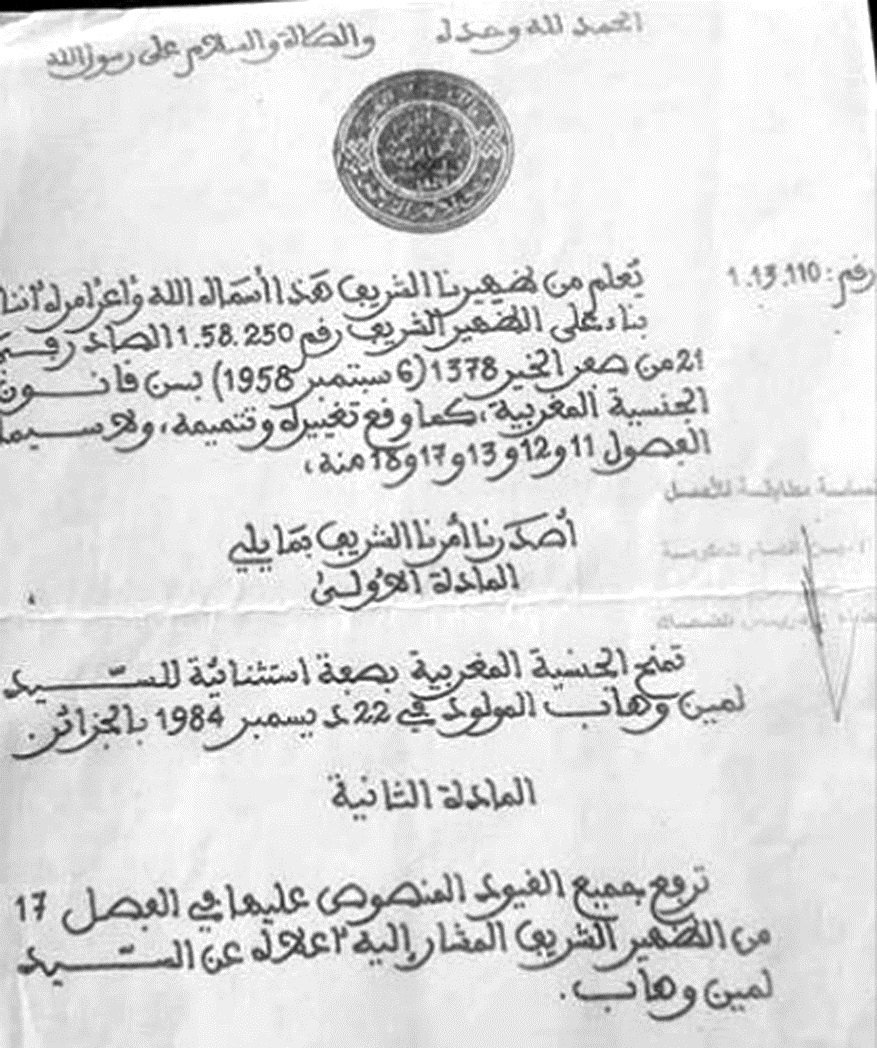 الحمد لله وحده والصلاة والسلام على رسول الله
رقم : 1.13.110
يُعلم من ظهيرنا الشريف هذا أسماه الله وأعز أمره أننا
بناء على الظهير الشريف رقم 1.58.250 الصادر في
21 من صفر الخير 1378 (6 سبتمبر 1958) بسن قانون
الجنسية المغربية، كما وقع تغييره وتتميمه، ولا سيما
الفصول 11 و12 و13 و17 و18 منه،
نسخة مطابقة للأصل
الأمين العام للحكومة
إدريس الضحاك
أصدرنا أمرنا الشريف بما يلي
المادة الأولى
تمنح الجنسية المغربية بصفة استثنائية للسيد
لمين وهاب المولود في 22 ديسمبر 1984 بالجزائر.
المادة الثانية
ترفع جميع القيود المنصوص عليها في الفصل 17
من الظهير الشريف المشار إليه أعلاه عن السيد
لمين وهاب.